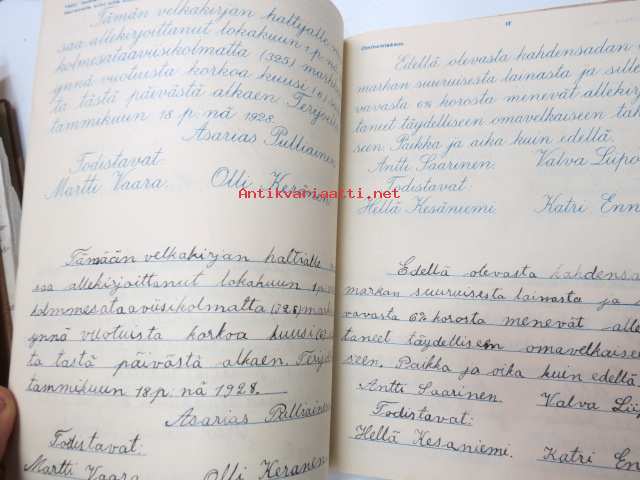 Tämän velkakirjan haltijalle
saa allekirjoittanut lokakuun 1 p:nä
kolmesataaviisikolmatta (325) mark
ynnä vuotuista korkoa kuusi (6)
ta tästä päivästä alkaen.
tammikuun 18 p:nä 1928.
Asarias Pulliainen
Todistavat:
Martti Vaara. Olli Keränen
Tämään velkakirjan haltialle
saa allekirjoittanut lokakuun
kolmmesataaviisikolmatta (325) mark
ynnä vuotuista korkoa kuusi (6)
ta tästä päivästä alkaen.
tammikuun 18 p:nä 1928.
Asarias Pulliain
Todistavat:
Martti Vaara. Olli Keränen
17
Edellä olevasta kahdensadan
markan suuruisesta lainasta ja sille
vavasta 6% korosta menevät allekirj
taneet täydelliseen omavelkaiseen tak
seen. Paikka ja aika kuin edellä.
Antti Saarinen. Valva Liipo
Todistavat:
Hellä Kesäniemi. Katri Enn
Edellä olevasta kahdensa
markan suuruisesta lainasta ja
vavasta 6% korosta menevät alle
taneet täydelliseen omavelkaise
seen. Paikka ja aika kuin edellä
Antti Saarinen. Valva Liip
Todistavat:
Hellä Kesäniemi. Katri En
Antikvariaatti.net